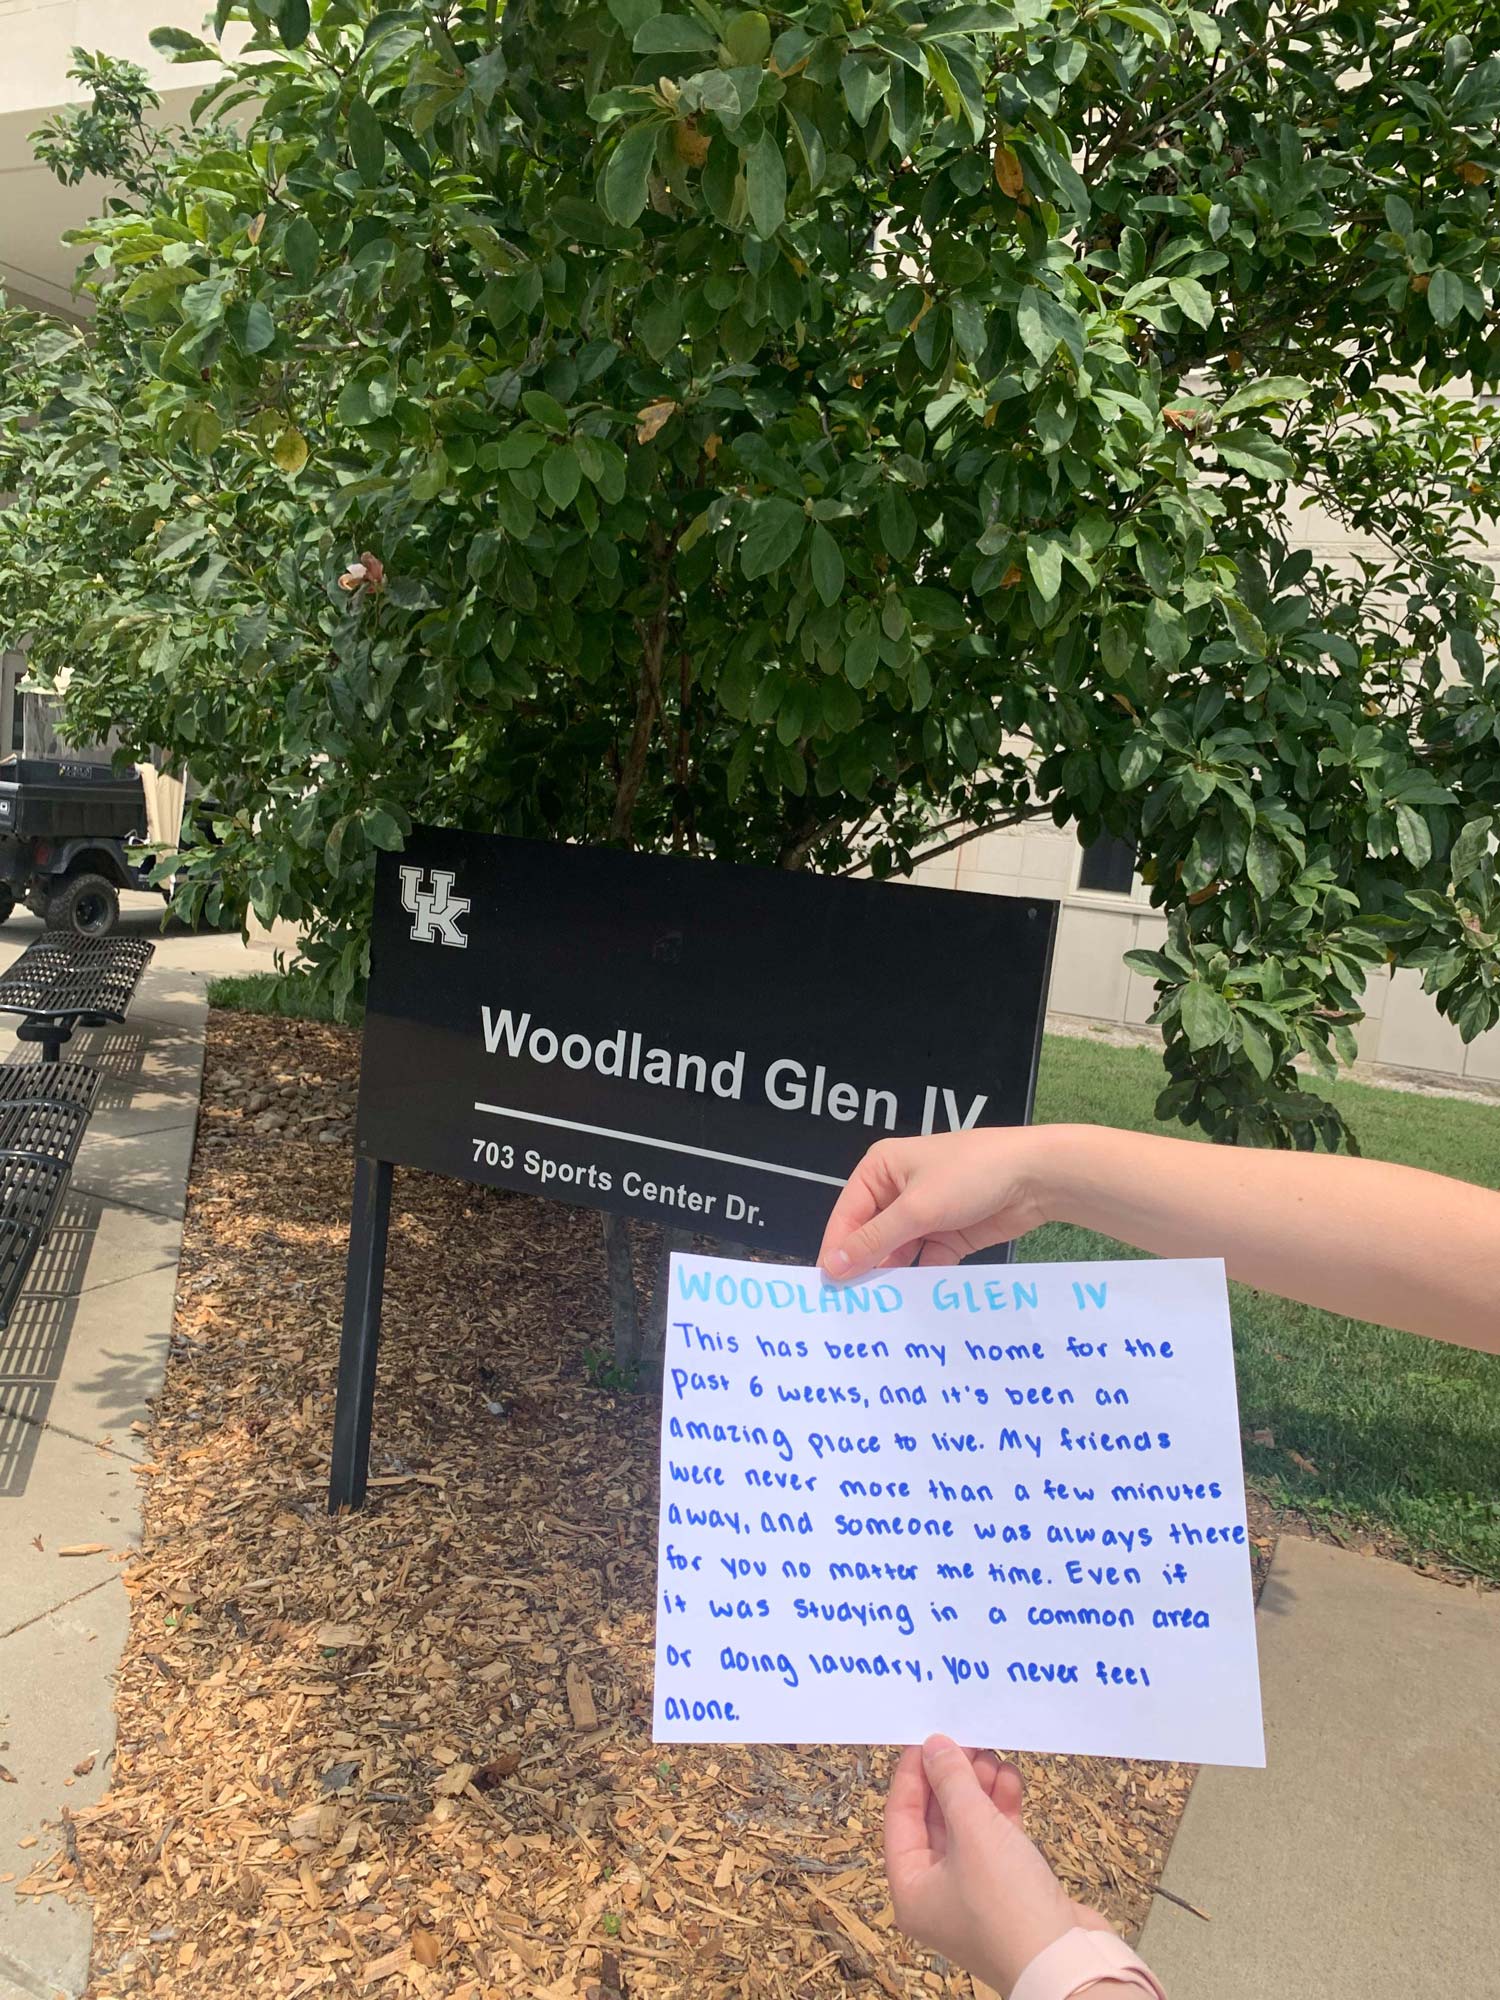 UK
Woodland Glen IV
703 Sports Center Dr.
WOODLAND GLEN IV
This has been my home for the
past 6 weeks, and it's been an
amazing place to live. My friends
were never more than a few minutes
away, and someone was always there
for you no matter the time. Even if
it was studying in a common area
or doing laundry, you never feel
alone.